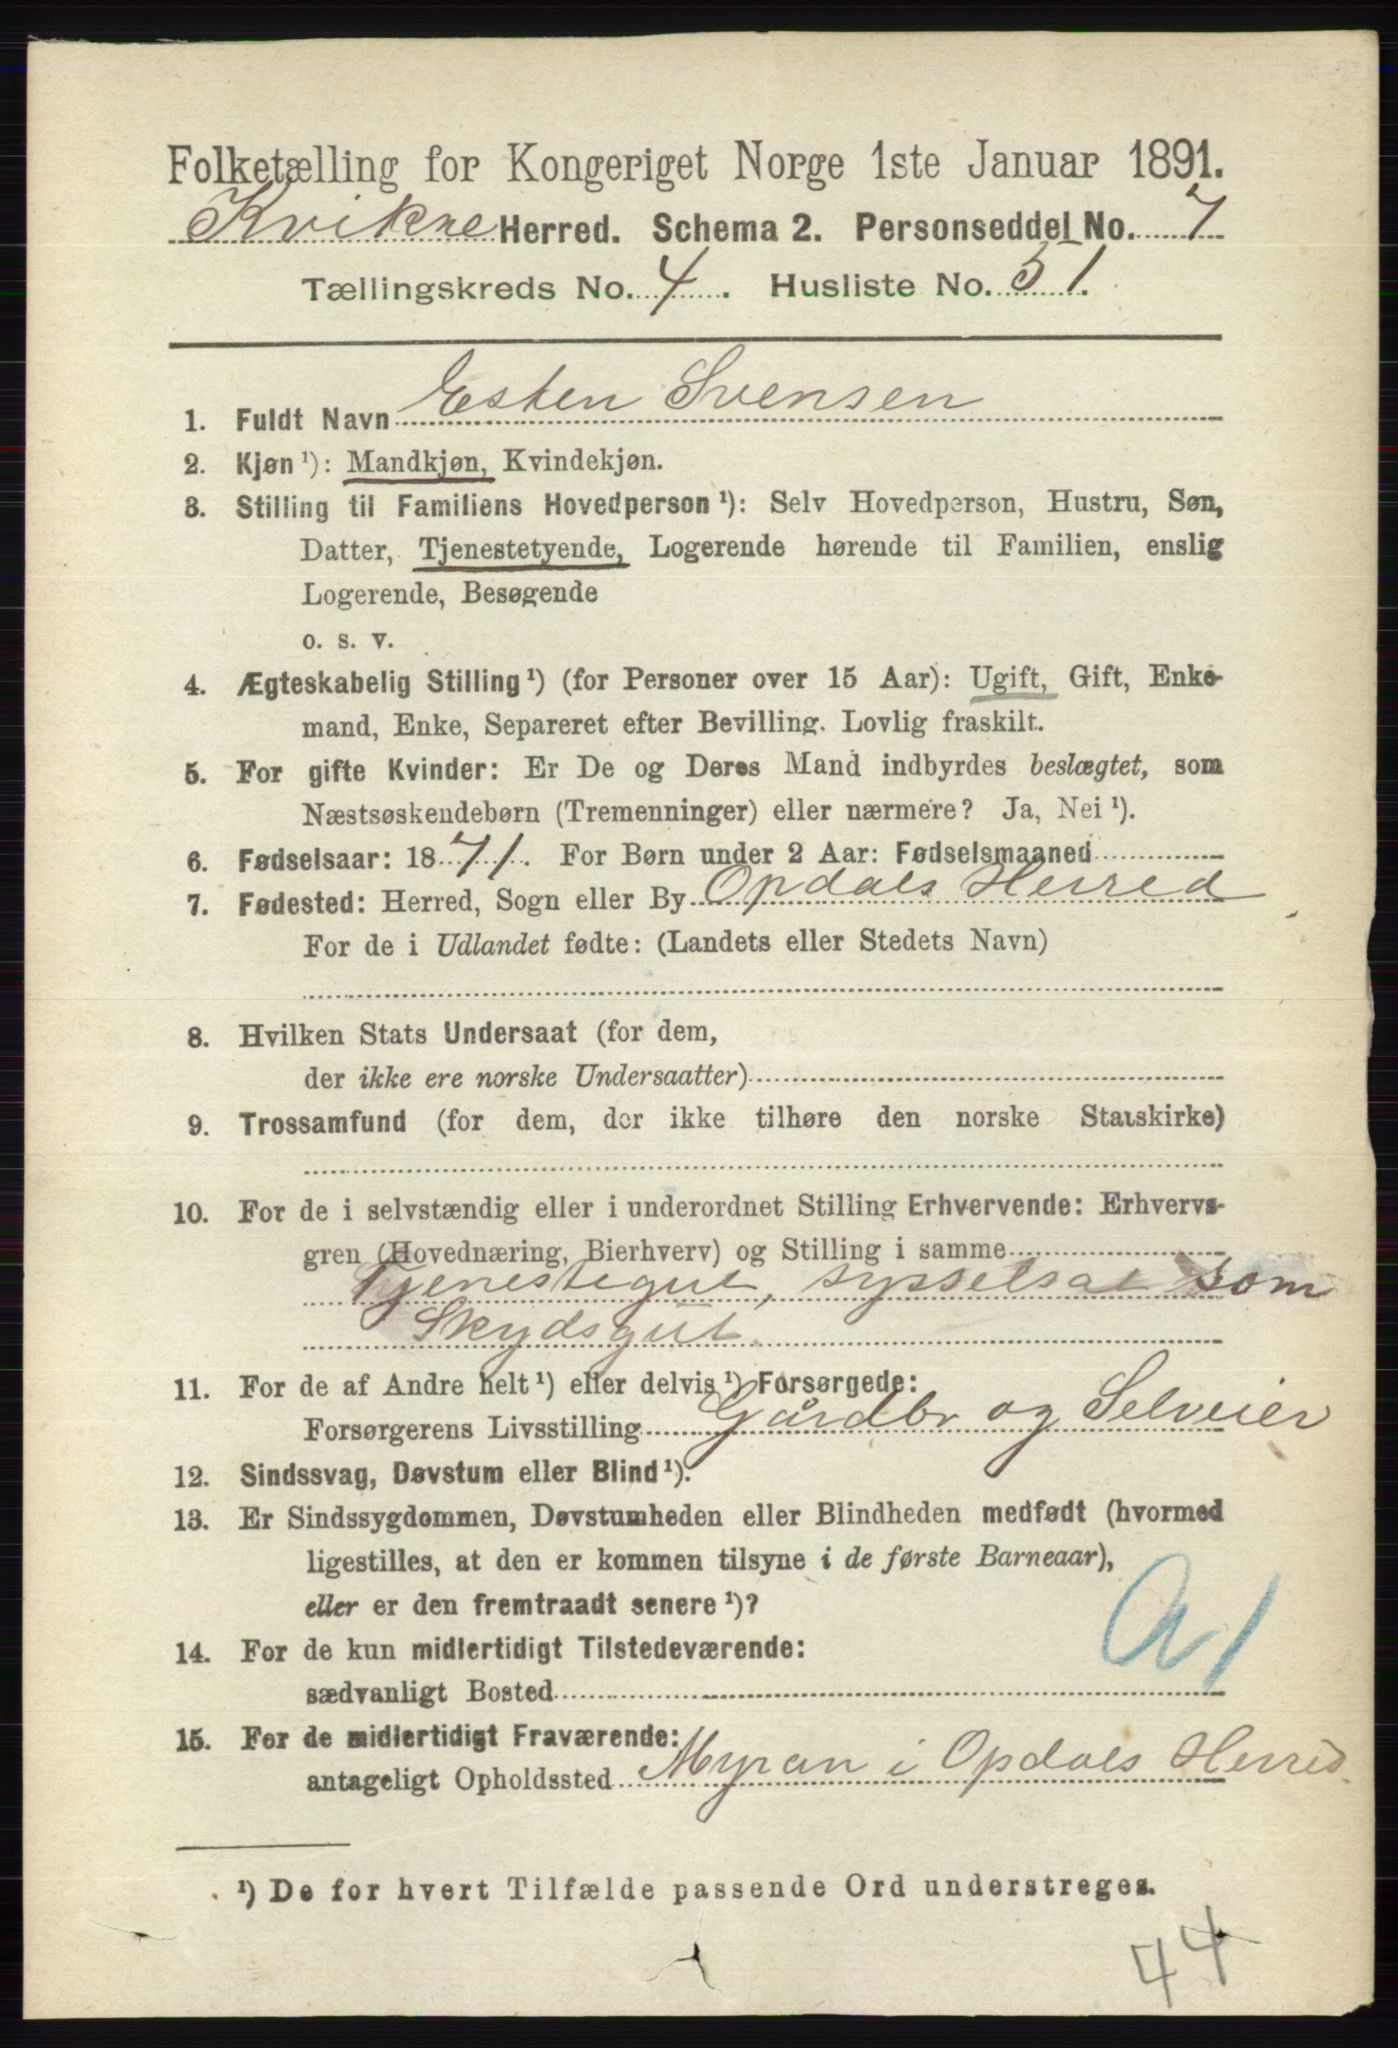 Folketælling for Kongeriget Norge 1ste Januar 1891.
Kvikne Herred. Schema 2. Personseddel No. 7
Tællingskreds No. 4. Husliste No. 51.
1. Fuldt Navn Esten Svensen
2. Kjøn ¹): Mandkjøn, Kvindekjøn.
3. Stilling til Familiens Hovedperson ¹): Selv Hovedperson, Hustru, Søn,
Datter, Tjenestetyende, Logerende hørende til Familien, enslig
Logerende, Besøgende
o. s. v.
4. Ægteskabelig Stilling ¹) (for Personer over 15 Aar): Ugift, Gift, Enke-
mand, Enke, Separeret efter Bevilling. Lovlig fraskilt.
5. For gifte Kvinder: Er De og Deres Mand indbyrdes beslægtet, som
Næstsøskendebørn (Tremenninger) eller nærmere? Ja, Nei ¹).
6. Fødselsaar: 1871. For Børn under 2 Aar: Fødselsmaaned
7. Fødested: Herred, Sogn eller By Opdals Herred
For de i Udlandet fødte: (Landets eller Stedets Navn)
8. Hvilken Stats Undersaat (for dem,
der ikke ere norske Undersaatter)
9. Trossamfund (for dem, der ikke tilhøre den norske Statskirke)
10. For de i selvstændig eller i underordnet Stilling Erhvervende: Erhvervs-
gren (Hovednæring, Bierhverv) og Stilling i samme
Tjenestegut, sysselsat som
Skydsgut.
11. For de af Andre helt ¹) eller delvis ¹) Forsørgede:
Forsørgerens Livsstilling Gårdbr og Selveier
12. Sindssvag, Døvstum eller Blind ¹).
13. Er Sindssygdommen, Døvstumheden eller Blindheden medfødt (hvormed
ligestilles, at den er kommen tilsyne i de første Barneaar),
eller er den fremtraadt senere ¹)?
14. For de kun midlertidigt Tilstedeværende:
sædvanligt Bosted
15. For de midlertidigt Fraværende:
antageligt Opholdssted Myran i Opdals Herred.
¹) De for hvert Tilfælde passende Ord understreges.
44